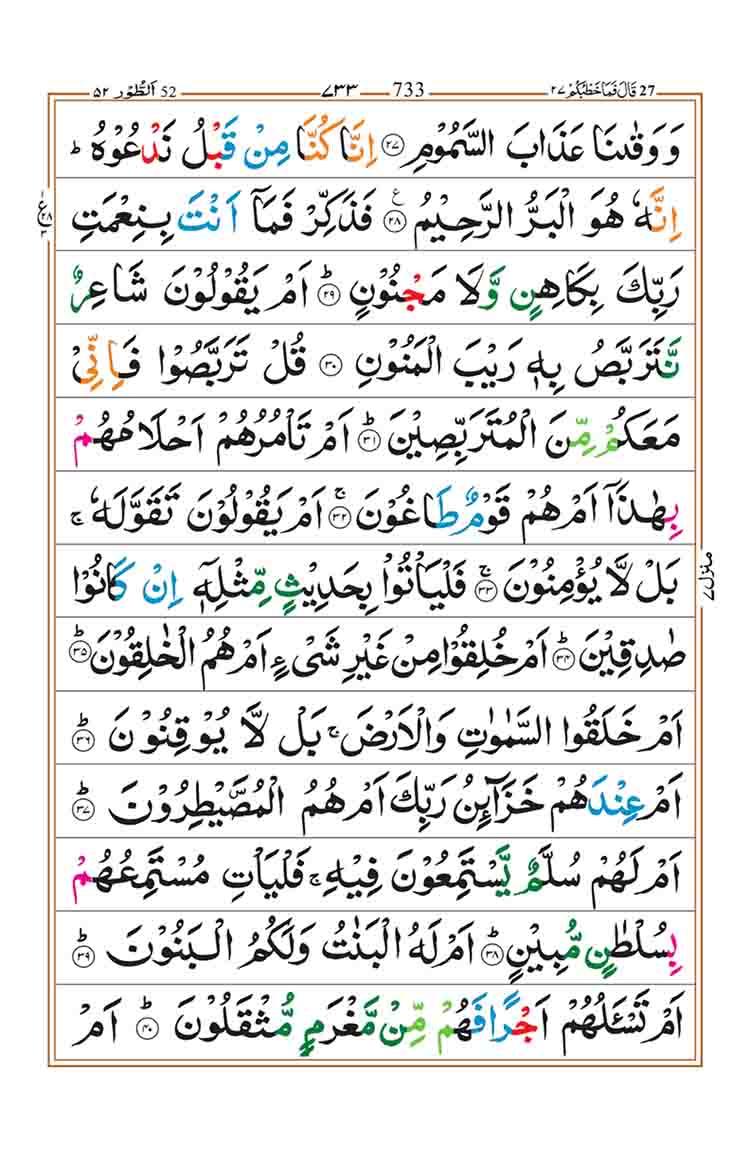 27 قَالَ فَمَا خَطْبُكُمْ ٢٧ 733 ٧٣٣ 52 اَلطُّوْر ٥٢
وَ وَقٰىنَا عَذَابَ السَّمُوْمِ ﴿۲۷﴾ اِنَّا كُنَّا مِنْ قَبْلُ نَدْعُوْهُ ؕ
اِنَّهٗ هُوَ الْبَرُّ الرَّحِيْمُ ﴿۲۸﴾ ع فَذَكِّرْ فَمَاۤ اَنْتَ بِنِعْمَتِ
ع ۱ ۲۸ ۳
رَبِّكَ بِكَاهِنٍ وَّلَا مَجْنُوْنٍ ؕ﴿۲۹﴾ اَمْ يَقُوْلُوْنَ شَاعِرٌ
نَّتَرَبَّصُ بِهٖ رَيْبَ الْمَنُوْنِ ﴿۳۰﴾ قُلْ تَرَبَّصُوْا فَاِنِّىْ
مَعَكُمْ مِّنَ الْمُتَرَبِّصِيْنَ ؕ﴿۳۱﴾ اَمْ تَاْمُرُهُمْ اَحْلَامُهُمْ
بِهٰذَاۤ اَمْ هُمْ قَوْمٌ طَاغُوْنَ ۚ﴿۳۲﴾ اَمْ يَقُوْلُوْنَ تَقَوَّلَهٗ ۚ
بَلْ لَّا يُؤْمِنُوْنَ ۚ﴿۳۳﴾ فَلْيَاْتُوْا بِحَدِيْثٍ مِّثْلِهٖۤ اِنْ كَانُوْا
منزل ٧
صٰدِقِيْنَ ؕ﴿۳۴﴾ اَمْ خُلِقُوْا مِنْ غَيْرِ شَىْءٍ اَمْ هُمُ الْخٰلِقُوْنَ ؕ﴿۳۵﴾
اَمْ خَلَقُوا السَّمٰوٰتِ وَالْاَرْضَ ۚ بَلْ لَّا يُوْقِنُوْنَ ؕ﴿۳۶﴾
اَمْ عِنْدَهُمْ خَزَآئِنُ رَبِّكَ اَمْ هُمُ الْمُصَۜيْطِرُوْنَ ؕ﴿۳۷﴾
اَمْ لَهُمْ سُلَّمٌ يَّسْتَمِعُوْنَ فِيْهِ ۚ فَلْيَاْتِ مُسْتَمِعُهُمْ
بِسُلْطٰنٍ مُّبِيْنٍ ؕ﴿۳۸﴾ اَمْ لَهُ الْبَنٰتُ وَلَكُمُ الْبَنُوْنَ ؕ﴿۳۹﴾
اَمْ تَسْـَٔلُهُمْ اَجْرًا فَهُمْ مِّنْ مَّغْرَمٍ مُّثْقَلُوْنَ ؕ﴿۴۰﴾ اَمْ